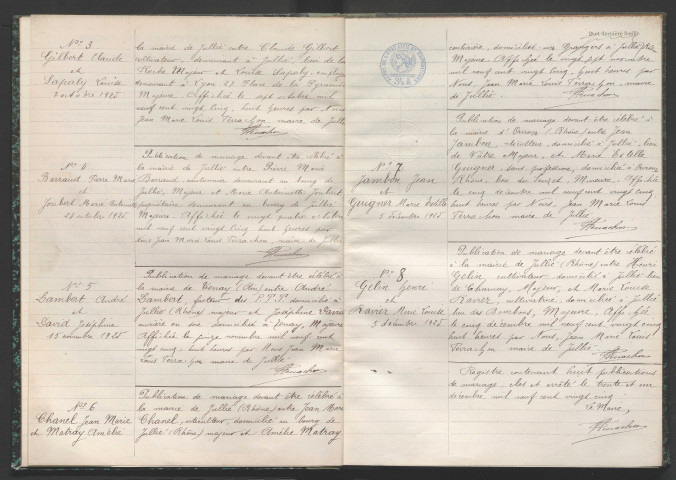 N° 3
Gilbert Claude
et
Sapaly Louise
2 octobre 1925
la mairie de Jullié entre Claude Gilbert
cultivateur, demeurant à Jullié, lieu de la
Roche Majeur et Louise Sapaly, employée
demeurant à Lyon Place de la Pyramide
Majeure. Affichée le sept octobre mil
neuf cent vingt cinq, huit heures par Nous
Jean Marie Louis Terrachon, maire de Jullié
N° 4
Berraud Pierre Marie
et
Joubert Marie Antoinette
24 octobre 1925
Publication de mariage devant être célébré à
la mairie de Jullié entre Pierre Marie
Berraud, demeurant au bourg de
Jullié, Majeur et Marie Antoinette Joubert
propriétaire demeurant au bourg de Jullié
Majeure. Affichée le vingt quatre octobre
mil neuf cent vingt cinq huit heures par
Nous Jean Marie Louis Terrachon, maire de Jullié
N° 5
Lambert André
et
David Joséphine
15 novembre 1925
Publication de mariage devant être célébré à
la mairie de (Ain) entre André
Lambert, facteur des P.T.T. domicilié à
Jullié (Rhône) majeur et Joséphine David
ouvrière en soie domiciliée à Majeure
Affichée le quinze novembre mil neuf cent
vingt cinq, huit heures par Nous Jean Marie
Louis Terrachon maire de Jullié
N° 6
Chanel Jean Marie
et Matray Amélie
Publication de mariage devant être célébré à
la mairie de Jullié (Rhône) entre Jean Marie
Chanel, viticulteur, domicilié au bourg de
Jullié (Rhône) majeur et Amélie Matray
N° 7
Jambon Jean
et
Guigner Marie Estelle
5 décembre 1925
couturière, domiciliée aux Grangers à Jullié
Majeure. Affichée le vingt sept novembre
mil neuf cent vingt cinq, huit heures par
Nous, Jean Marie Louis Terrachon, maire
de Jullié.
Publication de mariage devant être célébré à
la mairie d' (Rhône) entre Jean
Jambon, viticulteur, domicilié à Jullié, lieu
de Vâtre Majeur, et Marie Estelle
Guigner, sans profession, domiciliée à
Rhône, lieu de Majeure. Affichée
le cinq décembre mil neuf cent vingt cinq
huit heures par Nous, Jean Marie Louis
Terrachon maire de Jullié
N° 8
Gelin Henri
et
Raver Marie Louise
5 décembre 1925
Publication de mariage devant être célébré
à la mairie de Jullié (Rhône) entre Henri
Gelin, cultivateur, domicilié à Jullié lieu
de Majeur, et Marie Louise
Raver, cultivatrice, domiciliée à Jullié
lieu des Majeure, Affichée
le cinq décembre mil neuf cent vingt cinq
huit heures par Nous, Jean Marie Louis
Terrachon maire de Jullié
Registre contenant huit publications
de mariage, clos et arrêté le trente et un
décembre mil neuf cent vingt cinq
Le Maire,